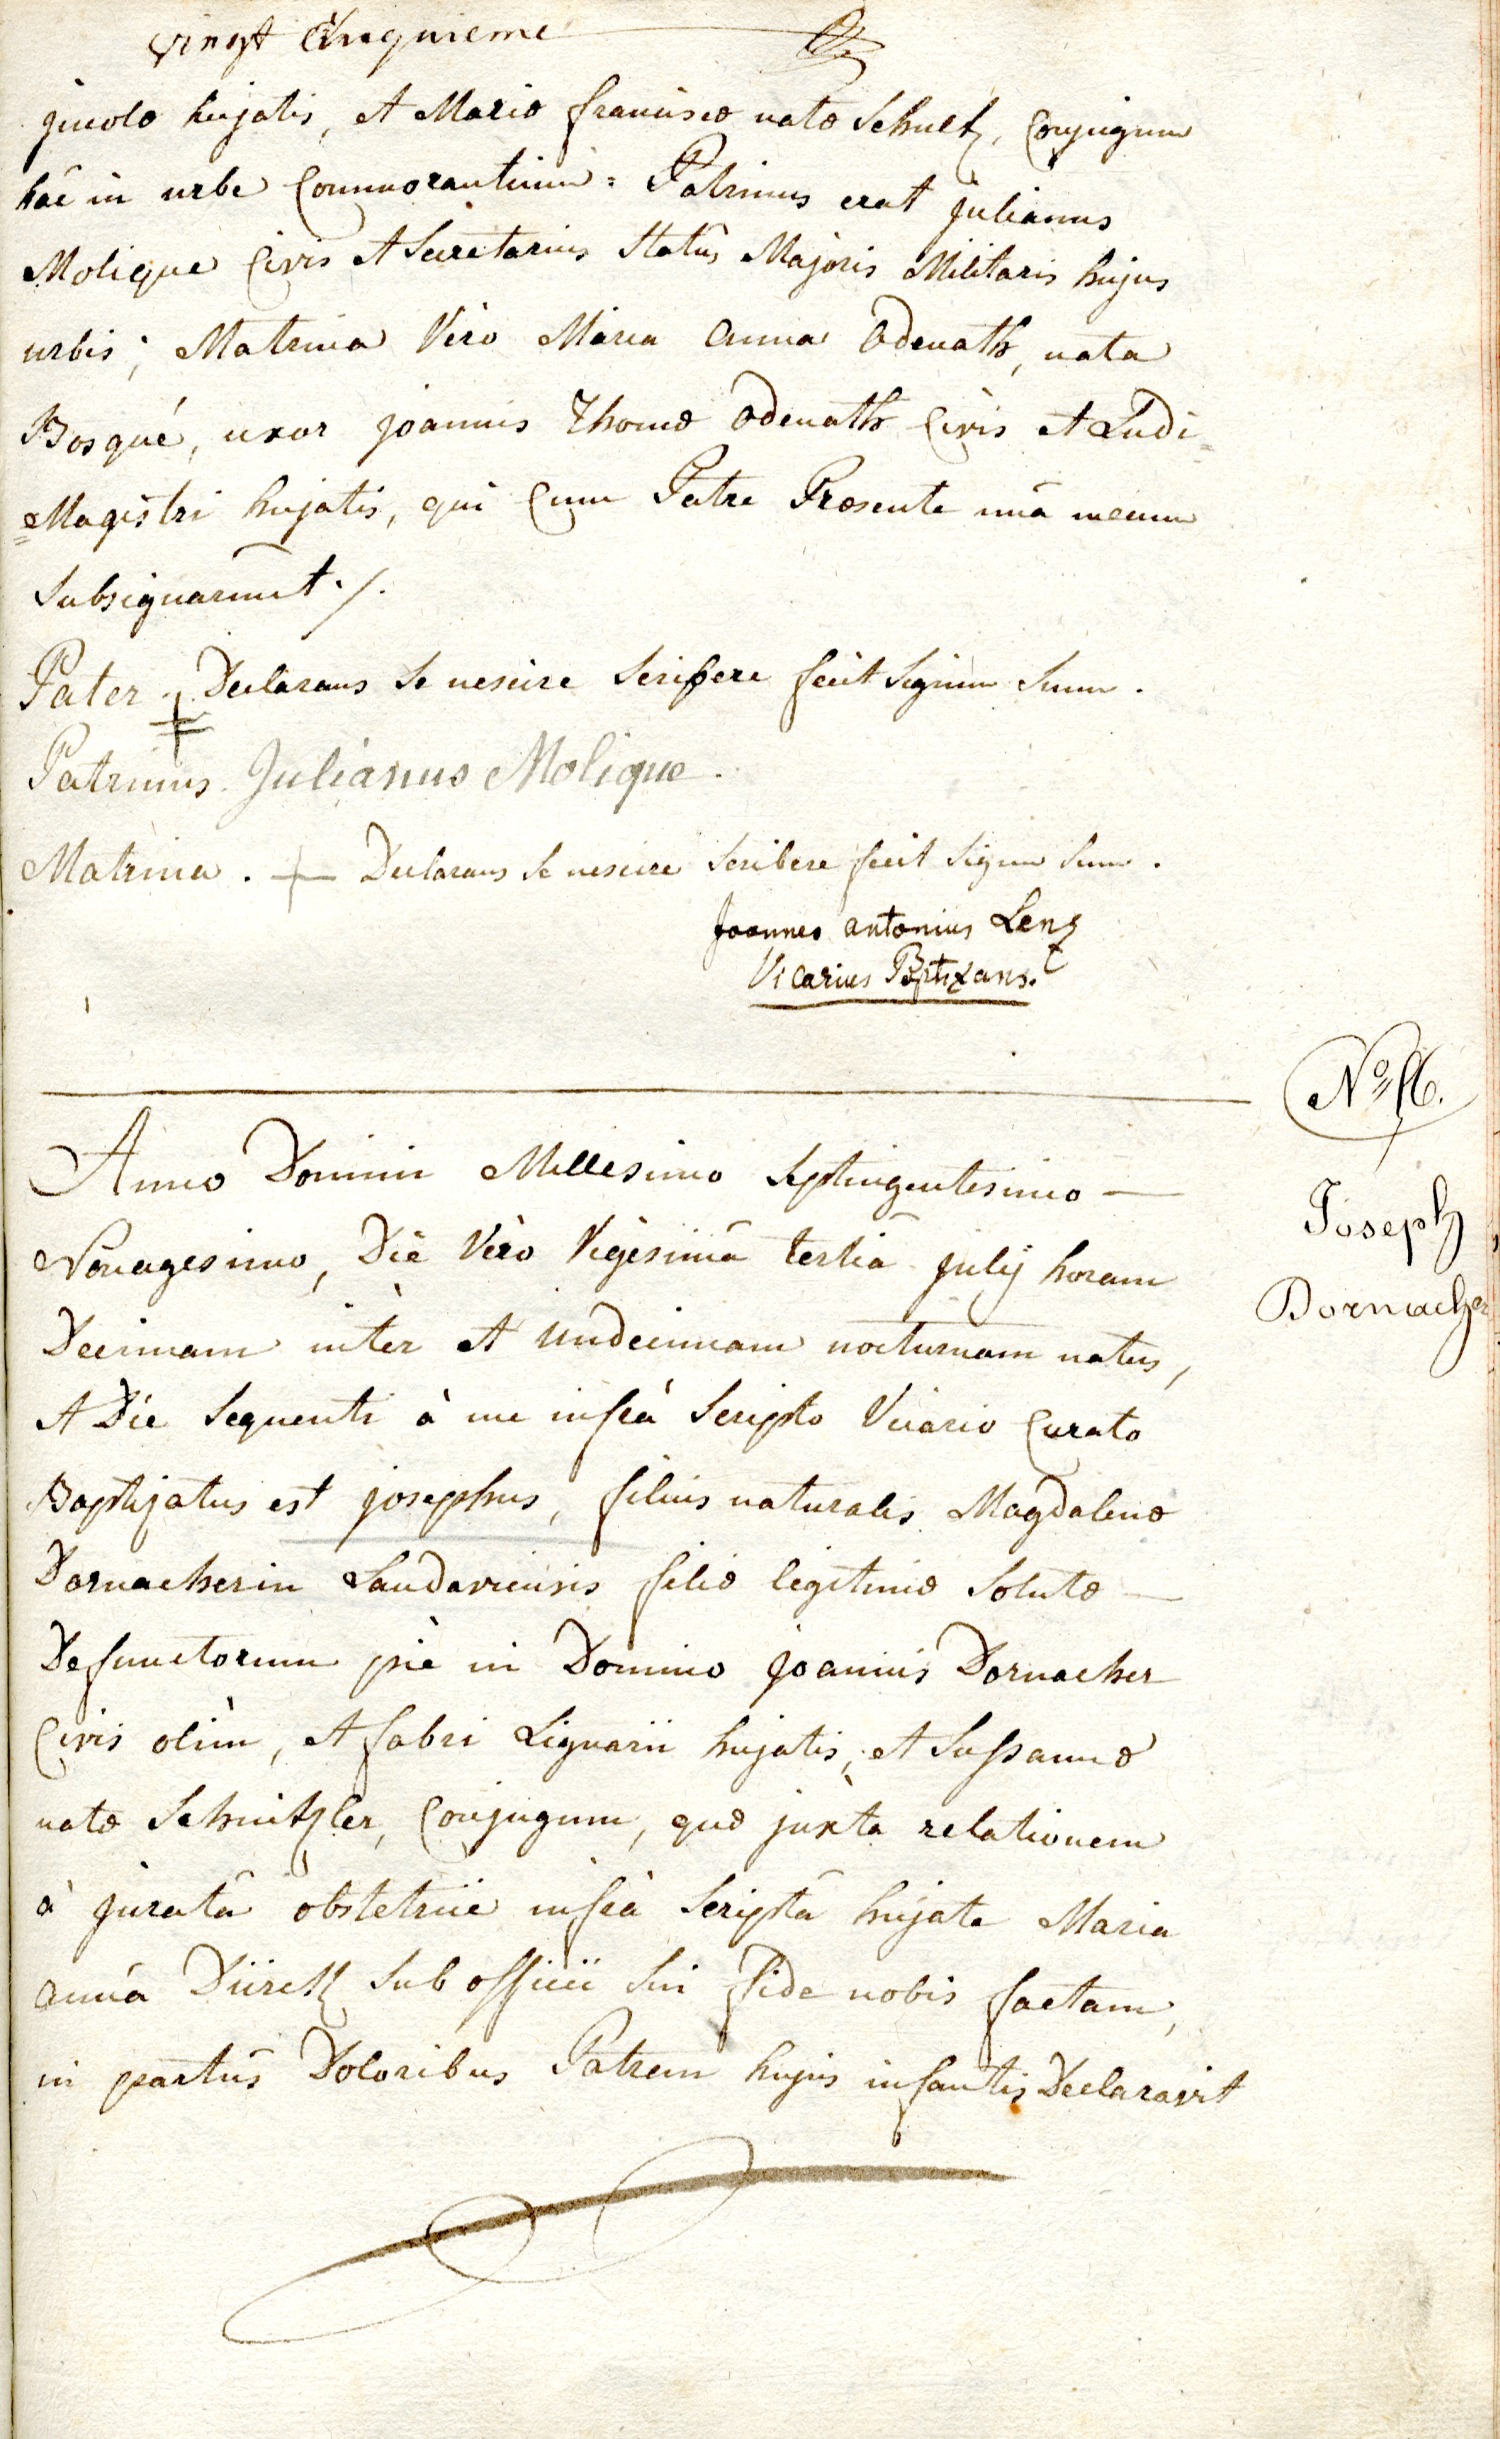 vingt Cinquieme
jncolæ hujatis, et Mariæ franciscæ natæ Schultz, Conjugum
hâc in urbe Commorantium = Patrinus erat julianus
Molique Civis et Secretarius Statûs Majoris Militaris hujus
urbis; Matrina Vero Maria anna Odenath, nata
Bosqué, uxor joannis Thomæ Odenath Civis et Ludi=
=Magistri hujatis, qui Cum Patre Præsente unà mecum
Subsignarunt ./.
Pater . ‡ Declarans Se nescire Scribere fecit Signum Suum .
Patrinus. Julianus Molique .
Matrina . + Declarans Se nescire Scribere fecit Signum Suum .
Joannes antonius Lenz
Vicarius Baptizans.
Anno Domini Millesimo Septingentesimo —
Nonagesimo, Die Vero Vigesimâ tertiâ julij horam
Decimam inter et undecimam nocturnam natus,
et Die Sequenti à me infrà Scripto Vicario Curato
Baptizatus est josephus, filius naturalis Magdalenæ
Dornacherin Landaviensis filiæ legitimæ Solutæ —
Defunctorum piè in Domino joannis Dornacher
Civis olim, et fabri Lignarii hujatis, et Sussannæ
natæ Schnitzler, Conjugum, quæ juxta relationem
à juratâ obstetrice infrà Scriptâ hujate Maria
annâ Dürell Sub officii Sui fide nobis factam,
in partûs Doloribus Patrem hujus infantis Declaravit
Nº
Joseph
Dornacher